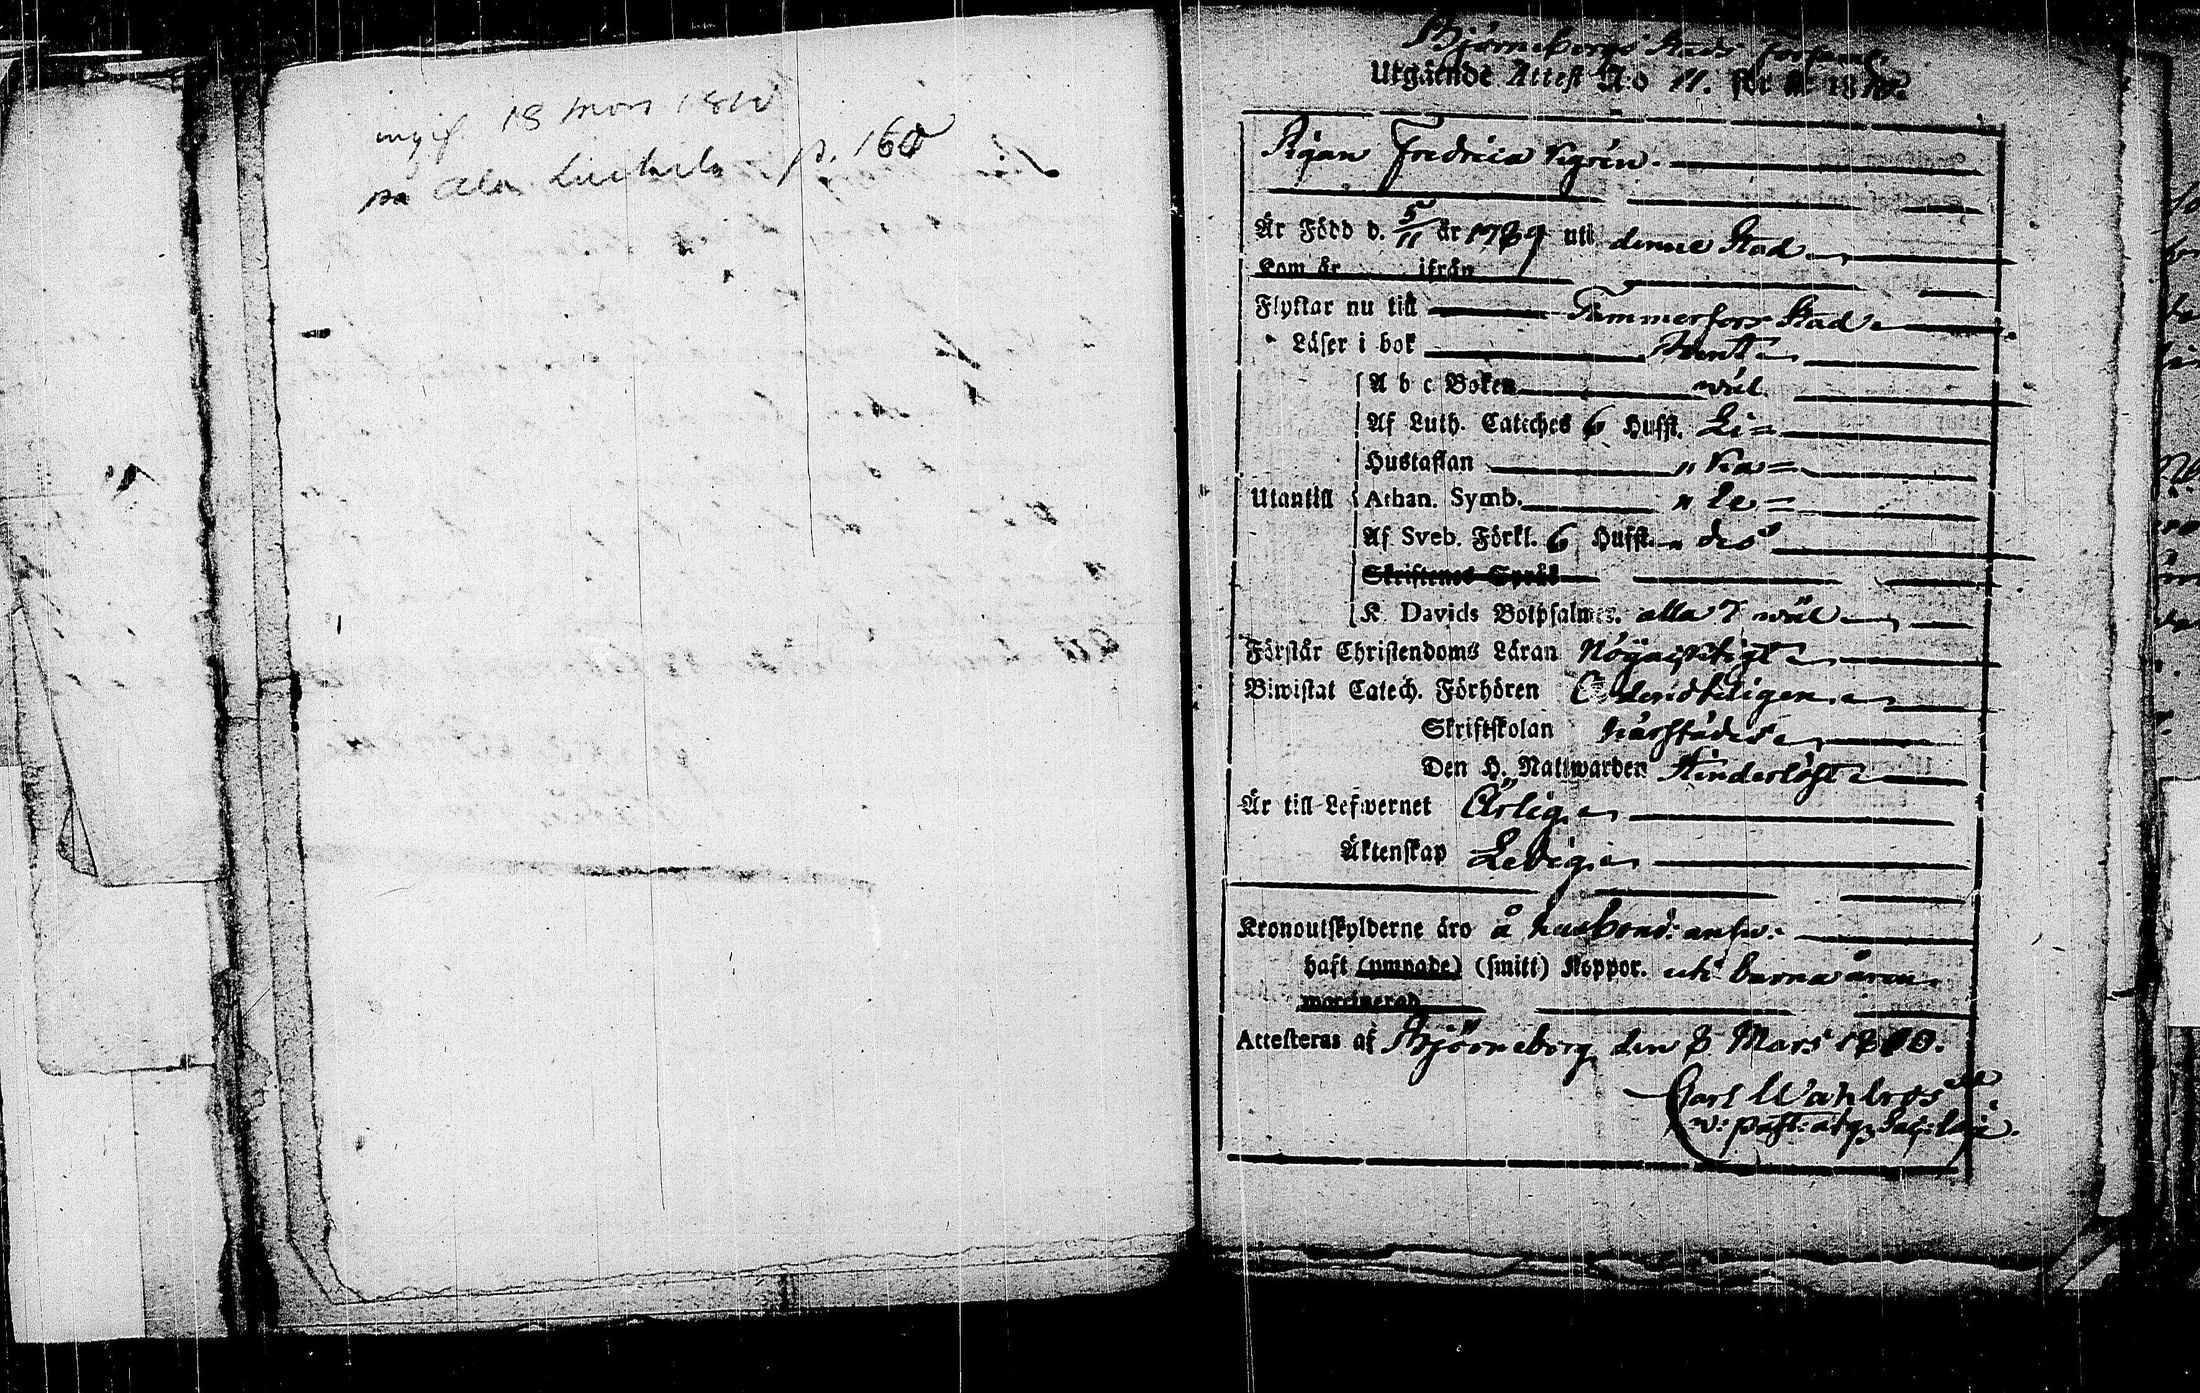 ingif 18 mars 1810
på Ala p. 160
Björneborgs Stads Förſaml.
Utgående Atteſt N:o 11. för år 1810.
Pigan Fredrica
Är Född d. 5/11 år 1789 uti denne Stad
Kom år ifrån
Flyttar nu till Tammerfors Stad
Läſer i bok
A b c Boken wäl
Af Luth. Cateches 6 Hufſt. Li=
Huſtaflan " ka=
Utantill Athan. Symb. " le=
Af Sveb. Förkl. 6 Hufſt. des
Skriftenes Språk
K. Davids Botpſalmer. alla 7 wäl
Förſtår Chriſtendoms Läran Nögagtigt
Biwiſtat Catech. Förhören Ordenteligen
Skriftſkolan härſtädes
Den H. Nattwarden
Är till Lefwernet Ärlig
Äktenſkap Ledig
Kronoutſkylderne äro å husbond: answ:
haft (ympade) (ſmitt) Koppor. uti barna åren
Atteſteras af Björneborg den 8 Mars 1810.
Carl